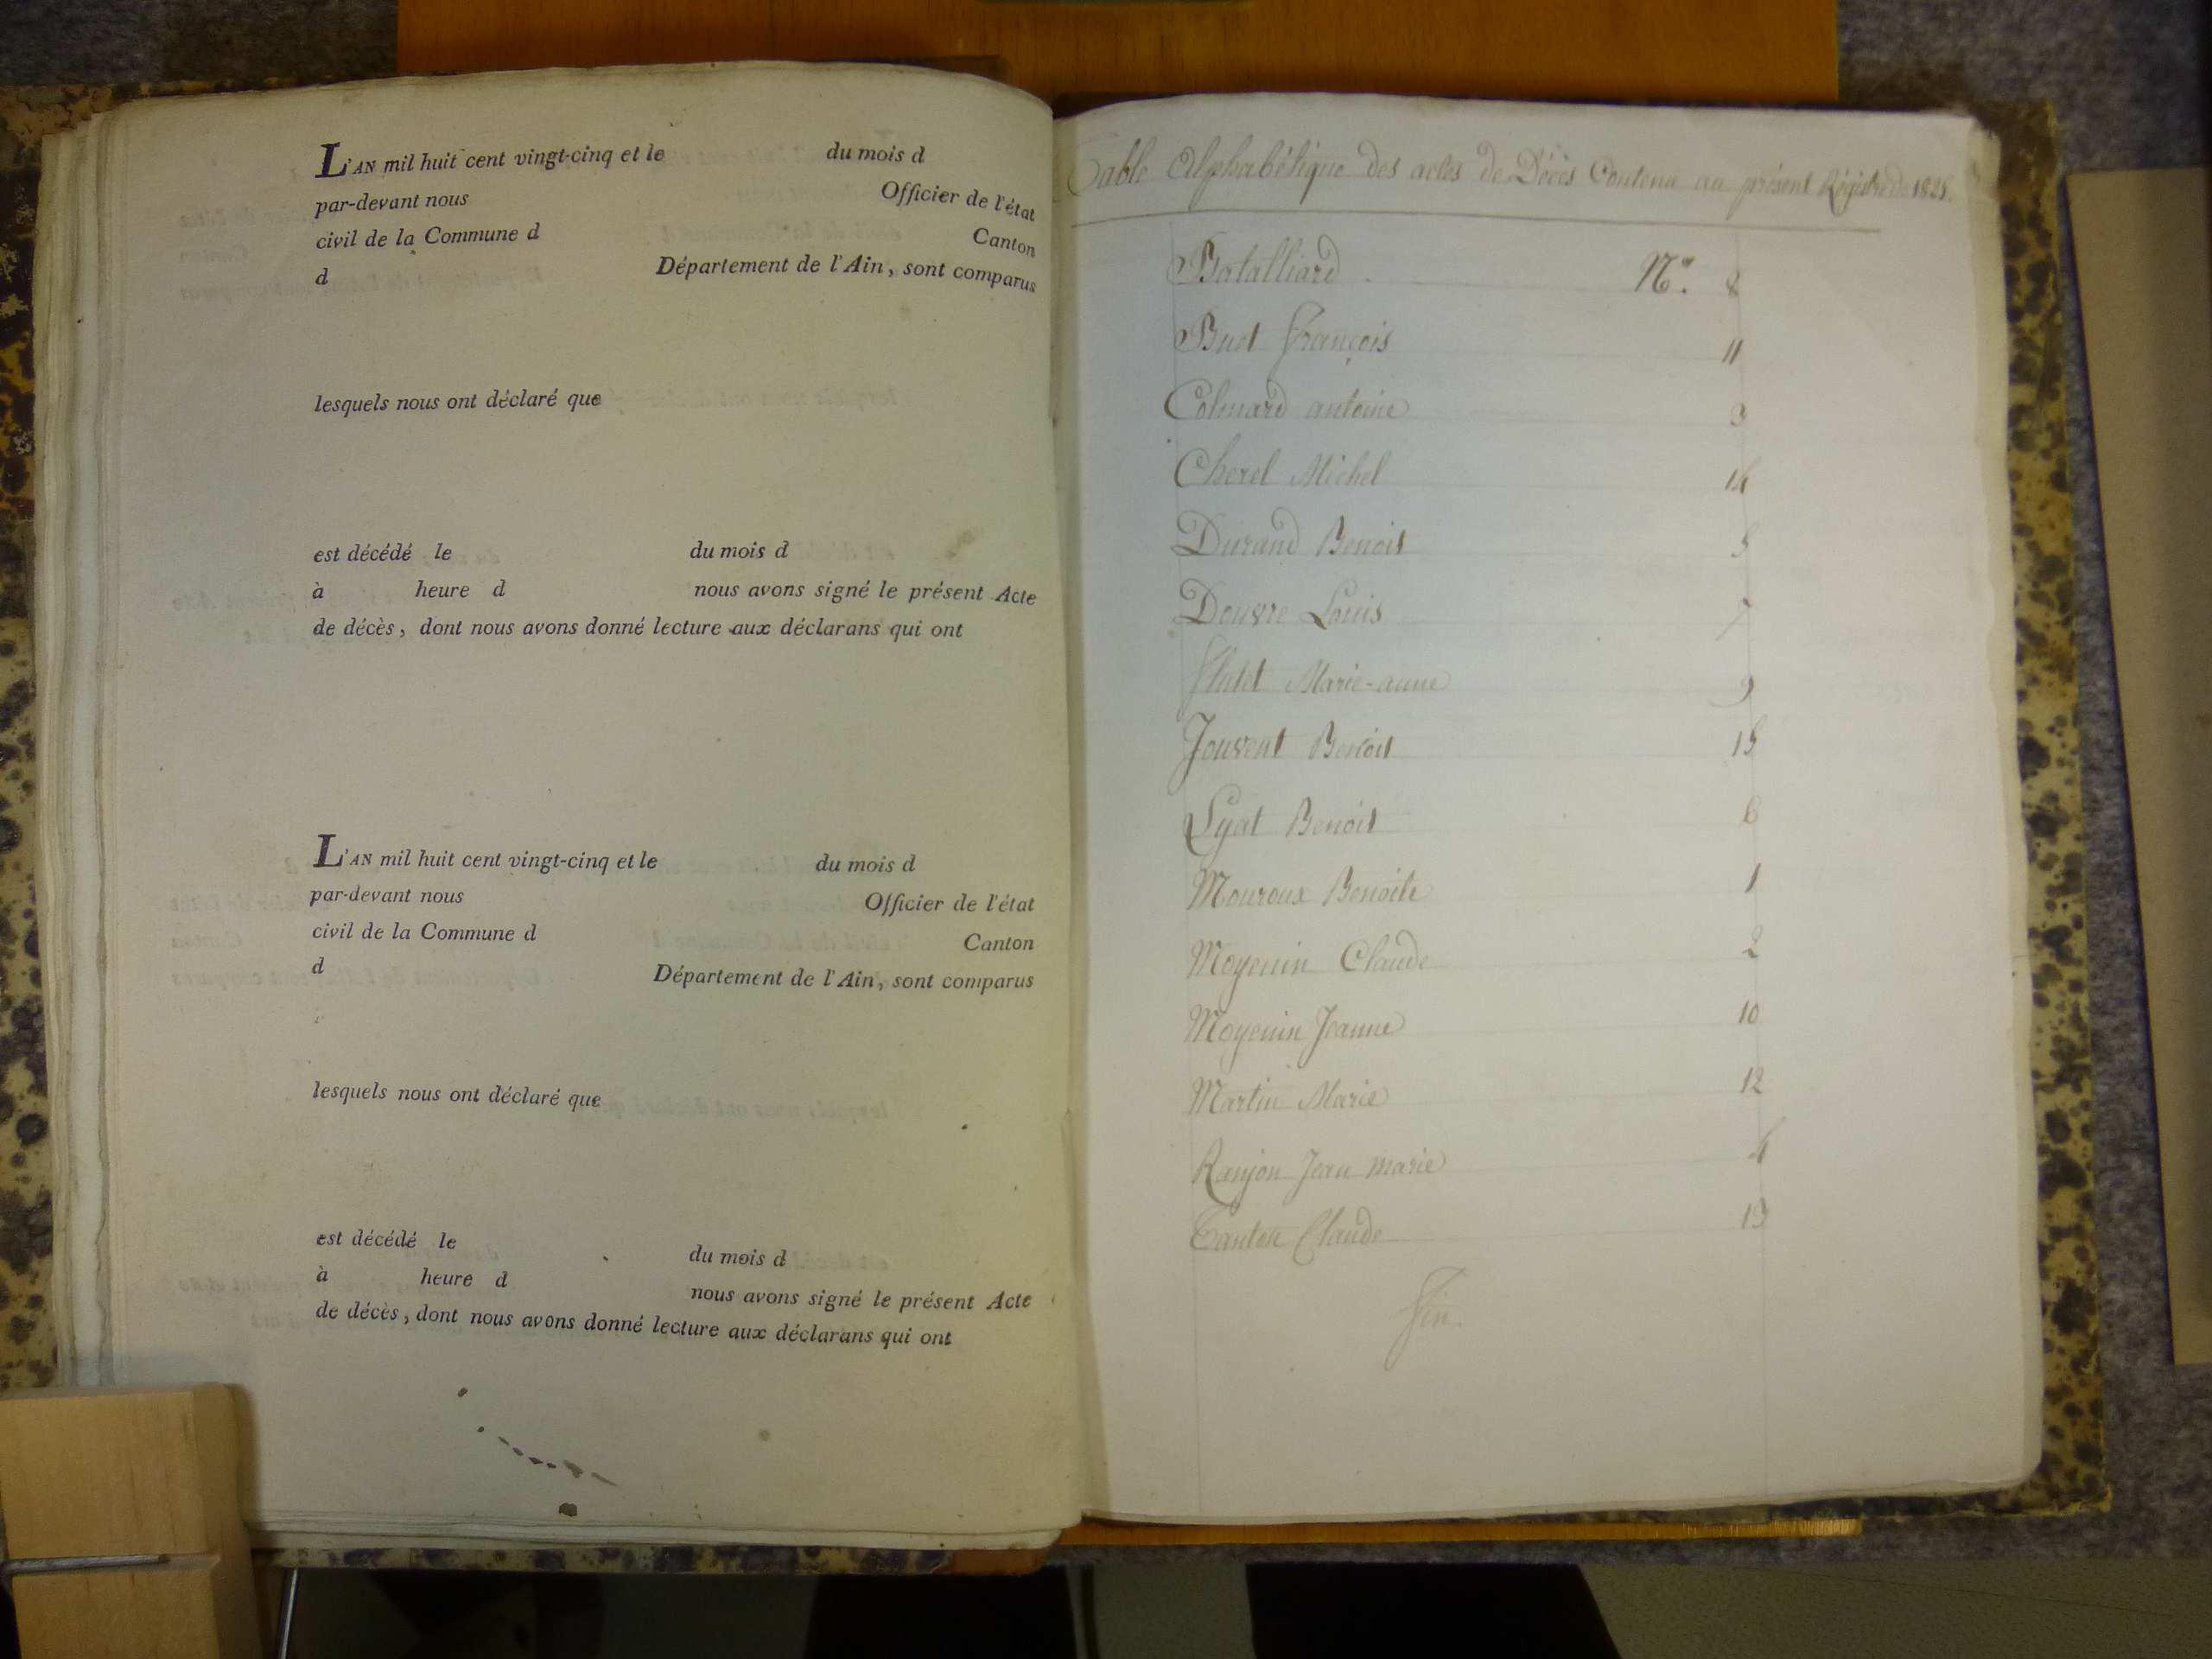 L'AN mil huit cent vingt-cinq et le du mois d
par-devant nous Officier de l'état
civil de la Commune d Canton
d Département de l'Ain, sont comparus
lesquels nous ont déclaré que
est décédé le du mois d
à heure d nous avons signé le présent Acte
de décès, dont nous avons donné lecture aux déclarans qui ont
L'AN mil huit cent vingt-cinq et le du mois d
par-devant nous Officier de l'état
civil de la Commune d Canton
d Département de l'Ain, sont comparus
lesquels nous ont déclaré que
est décédé le du mois d
à heure d nous avons signé le présent Acte
de décès, dont nous avons donné lecture aux déclarans qui ont
Table Alphabétique des actes de Décès Contenu au présent Régistre de 1825.
Batalliard N° 8
Buet françois 11
Colmard antoine 3
Cherel Michel 14
Durand Benoit 5
Douvre Louis 7
Marie-anne 9
Jouvent Benoit 15
Lyat Benoit 6
Mouroux Benoite 1
Moyenin Claude 2
Moyenin Jeanne 10
Martin Marie 12
Ranjon Jean marie 4
Canton Claude 13
fin.